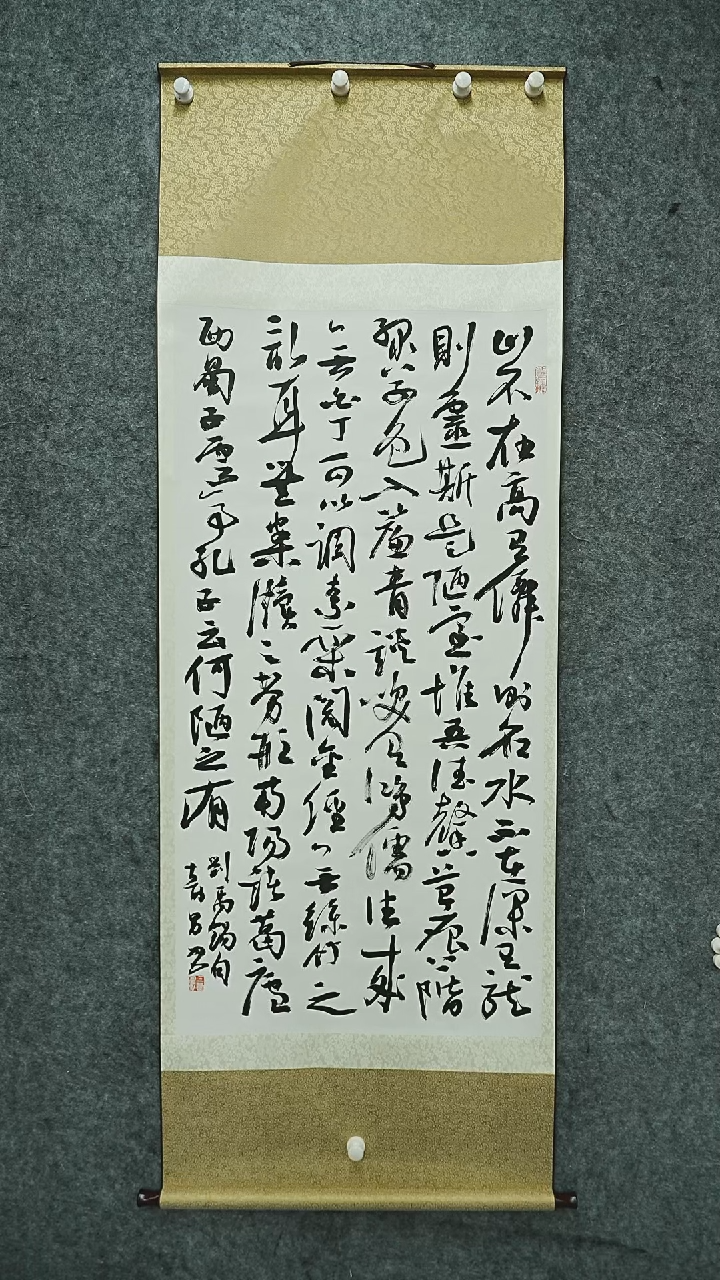 山不在高有僊則名水不在深有龍
則靈斯是陋室惟吾德馨苔痕上階
綠草色入簾青談笑有鴻儒往來
無白丁可以調素琴閱金經無絲竹之
亂耳無案牘之勞形南陽諸葛廬
西蜀子雲亭孔子云何陋之有
劉禹錫句